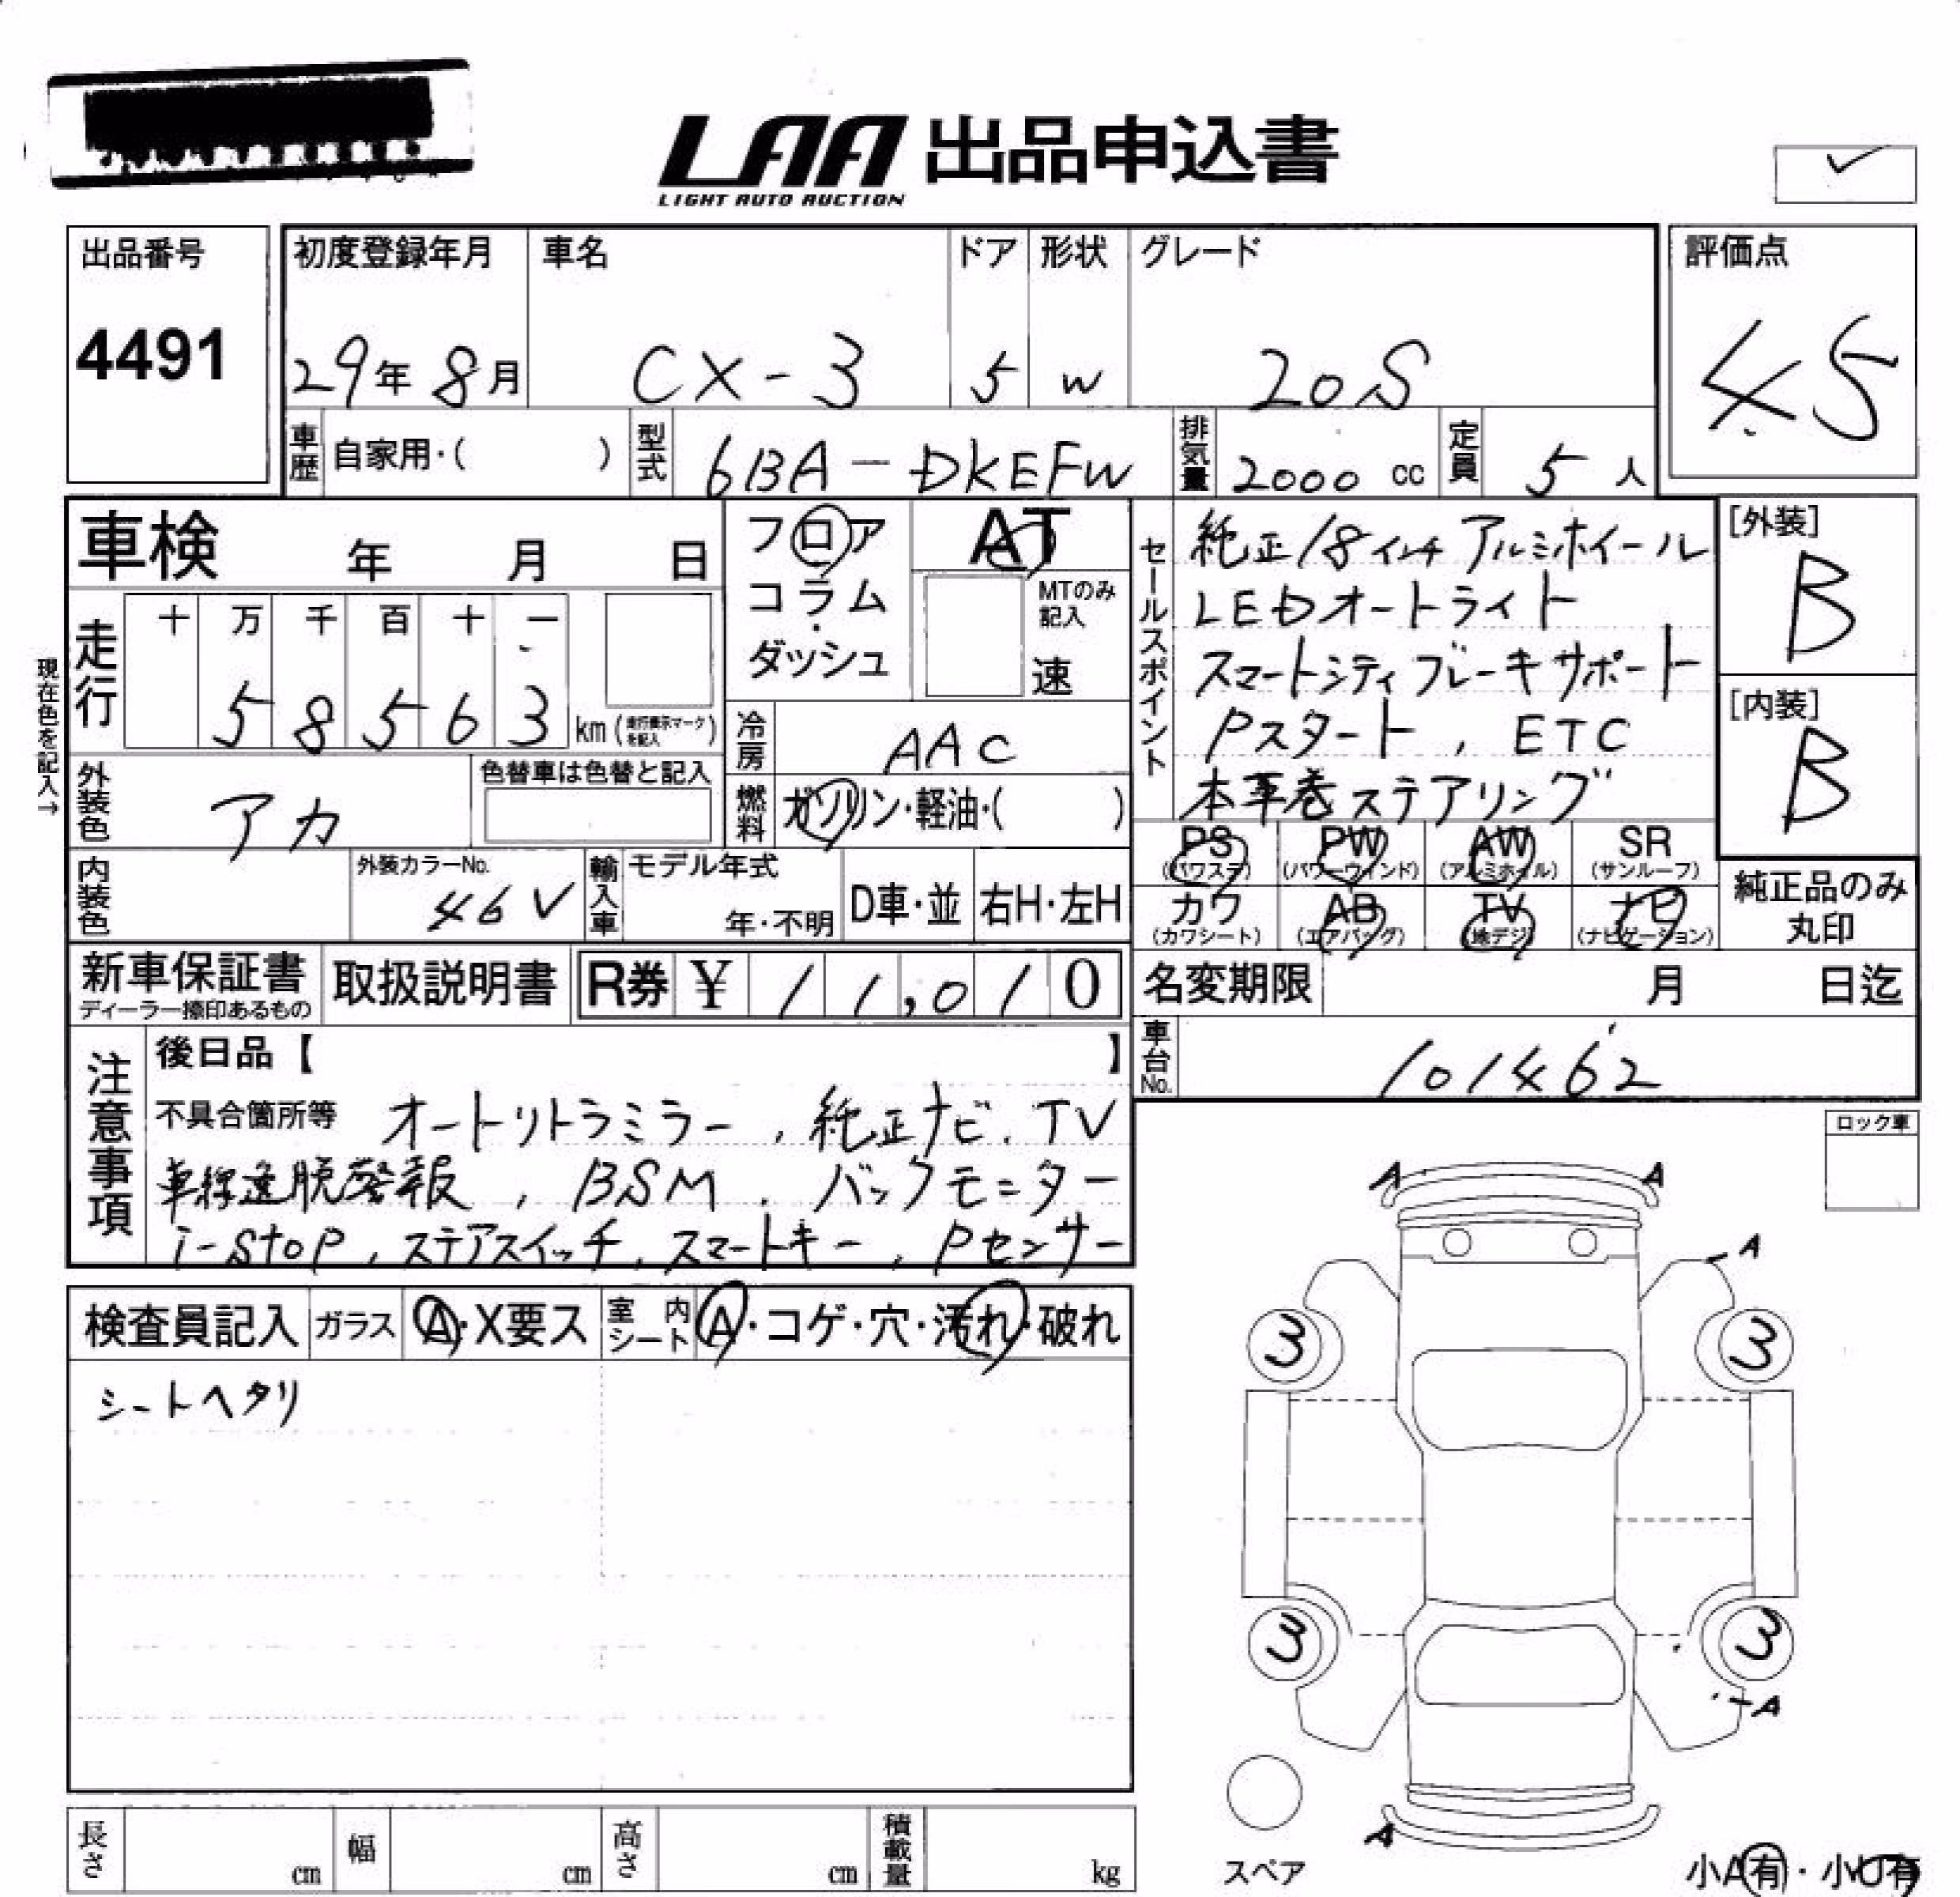 LAA 出品申込書
LIGHT AUTO AUCTION
出品番号
4491
初度登録年月 車名 ドア 形状 グレード
29年 8月 CX-3 5 W 20S
評価点
4.5
車歴 自家用・( ) 型式 6BA-DKEFW 排気量 2000 cc 定員 5 人
車検 年 月 日
フロア
コラム
・
ダッシュ
AT
MTのみ
記入
速
走行
十 万 千 百 十 一
5 8 5 6 3 km (走行表示マークを記入)
現在色を記入→
外装色 アカ
色替車は色替と記入
冷房 AAC
燃料 ガソリン・軽油・( )
内装色
外装カラーNo.
46V
輸入車 モデル年式
年・不明 D車・並 右H・左H
セールスポイント
純正18インチアルミホイール
LEDオートライト
スマートシティブレーキサポート
Pスタート, ETC
本革巻ステアリング
[外装]
B
[内装]
B
PS PW AW SR
(パワステ) (パワーウインド) (アルミホイル) (サンルーフ)
カワ AB TV ナビ
(カワシート) (エアバッグ) (地デジ) (ナビゲーション)
純正品のみ
丸印
新車保証書
ディーラー捺印あるもの
取扱説明書
R券 ¥ 11,010
名変期限 月 日迄
車台No. 101462
注意事項
後日品【 】
不具合箇所等 オートリトラミラー, 純正ナビ, TV
車線逸脱警報, BSM, バックモニター
i-stop, ステアスイッチ, スマートキー, Pセンサー
ロック車
検査員記入 ガラス A・X要ス 室内シート A・コゲ・穴・汚れ・破れ
シートヘタリ
A A
A
3 3
3 3
A
A
スペア
小A有・小U有
長さ cm 幅 cm 高さ cm 積載量 kg